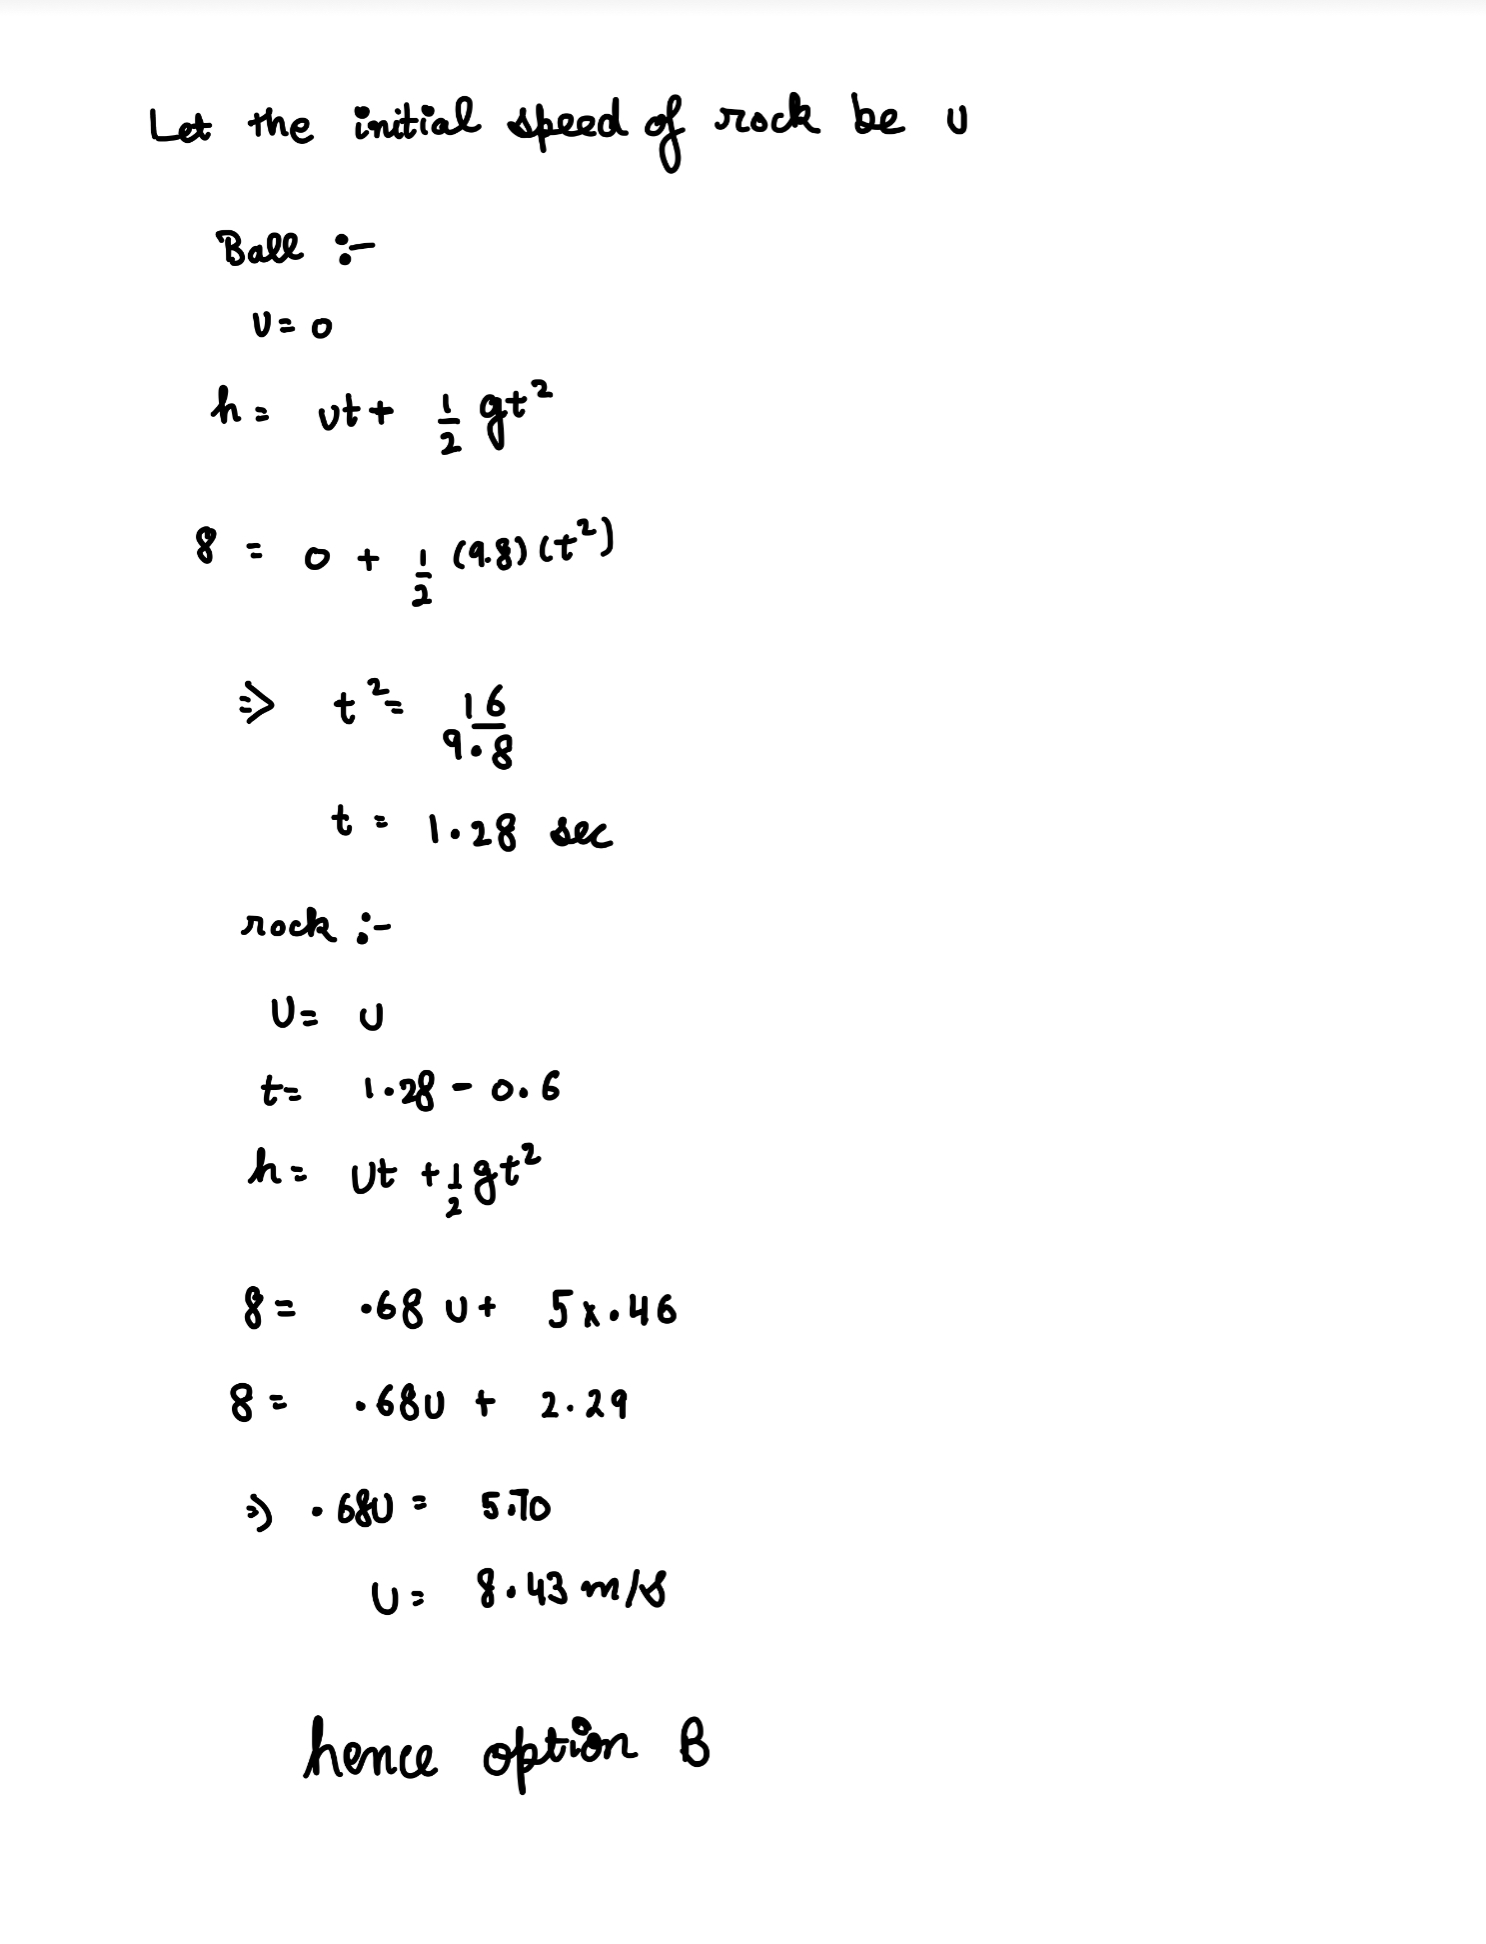 Let the initial speed of rock be u
Ball :-
u= 0
h= ut + 1/2 gt²
8 = 0 + 1/2 (9.8) (t²)
⇒ t² = 16/9.8
t = 1.28 sec
rock :-
U= u
t= 1.28 - 0.6
h= ut + 1/2 gt²
8= .68 u + 5x.46
8= .68u + 2.29
⇒ .68u = 5.70
U= 8.43 m/s
hence option B